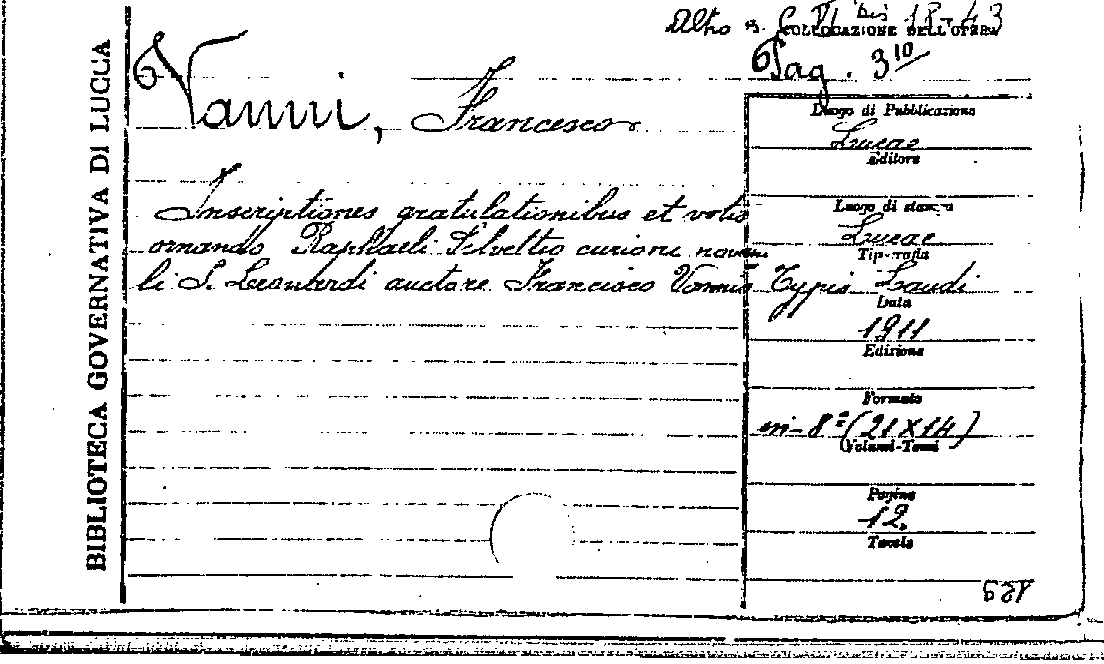 Altro es. C. VI bis 18-43
COLLOCAZIONE DELL'OPERA
Pag. 3¹⁰
BIBLIOTECA GOVERNATIVA DI LUCCA
Vanni, Francesco
Inscriptiones gratulationibus et votis
ornando Raphaeli Silvettio curioni
li S. Leonardi auctore Francisco Vannio Typis Landi
Luogo di Pubblicazione
Lucae
Editore
Luogo di stampa
Lucae
Tipografia
Data
1911
Edizione
Formato
in-8º (21X14)
Volumi-Tomi
Pagine
12.
Tavole